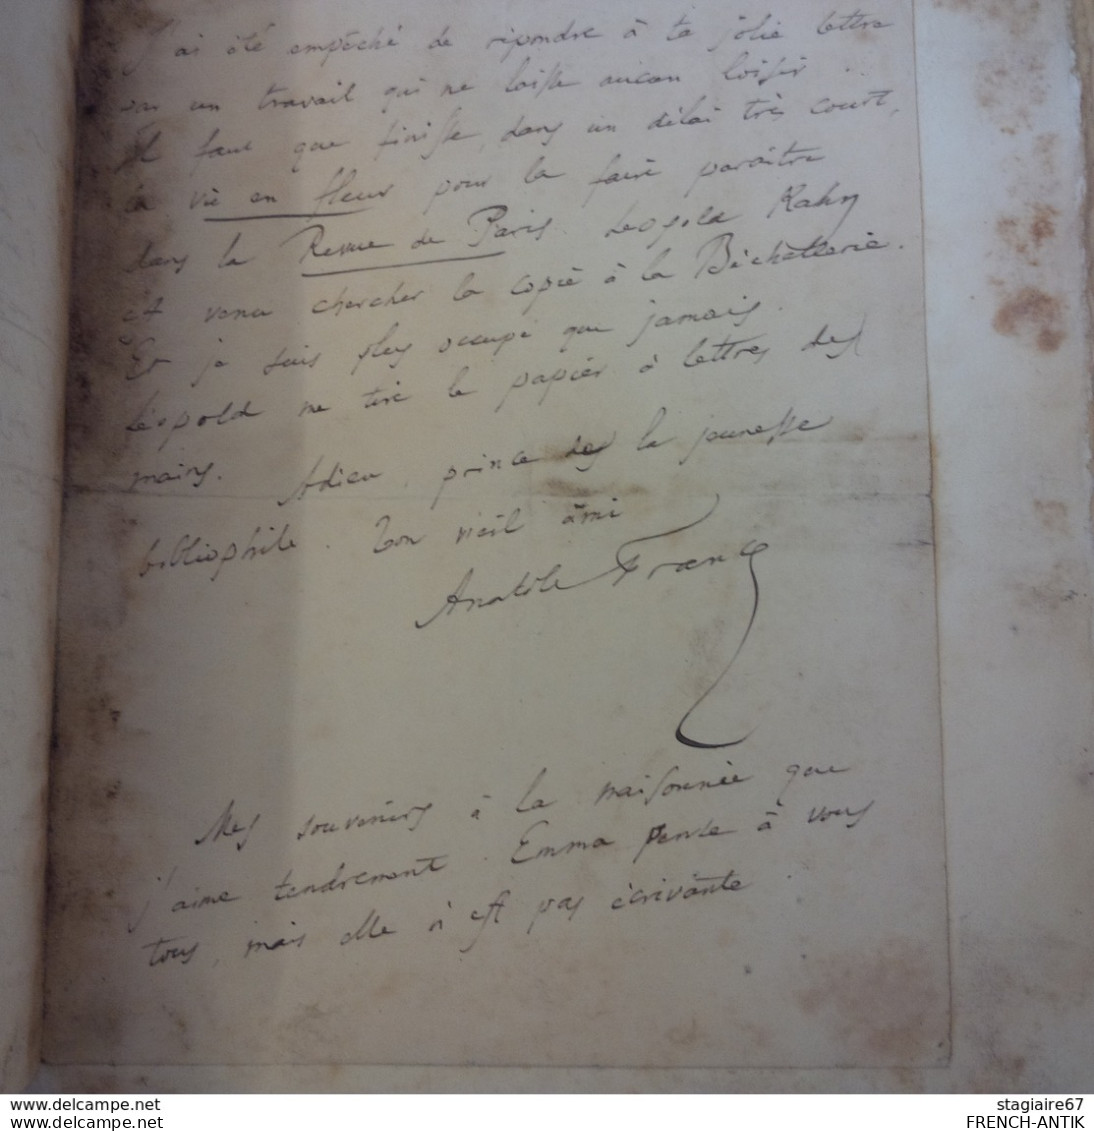 J'ai été empêché de répondre à ta jolie lettre
par un travail qui ne laisse aucun loisir.
Il faut que finisse, dans un délai très court,
la vie en fleur pour la faire paraître
dans la Revue de Paris. Leopold Kahn
est venu chercher la copie à la Béchellerie.
Et je suis plus occupé que jamais.
Léopold me tire le papier à lettres des
mains. Adieu, prince de la jeunesse
bibliophile. Ton vieil ami
Anatole France
Mes souvenirs à la maisonnée que
j'aime tendrement. Emma pense à vous
tous, mais elle n'est pas écrivante.
www.delcampe.net
www.delcampe.net
stagiaire67
FRENCH-ANTIK